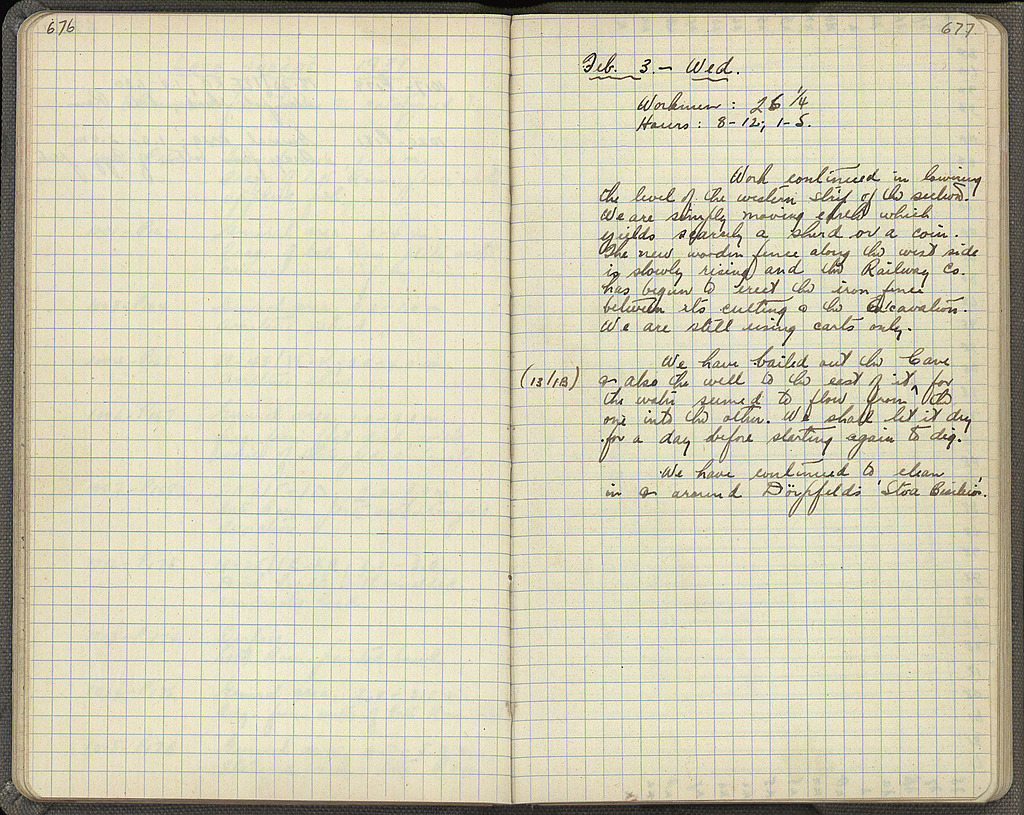 676
677
Feb. 3. - Wed.
Workmen: 26 1/4
Hours: 8-12; 1-5.
Work continued in lowering
the level of the western strip of the section.
We are simply moving earth which
yields scarcely a sherd or a coin.
The new wooden fence along the west side
is slowly rising and the Railway Co.
has begun to erect the iron fence
between its cutting & the Excavation.
We are still using carts only.
We have bailed out the Cave
(13/ΙΒ) & also the well to the east of it, for
the water seemed to flow from ^ the
one into the other. We shall let it dry
for a day before starting again to dig.
We have continued to clean
in & around Dörpfeld's 'Stoa Basileios'.